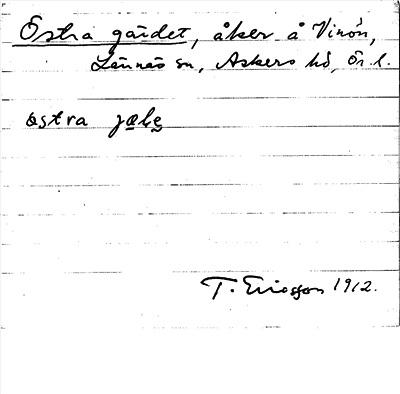 Östra gärdet, åker å Vinön,
Lännäs sn, Askers hd, Ör. l.
östra jæḷe̞
T. Ericsson 1912.